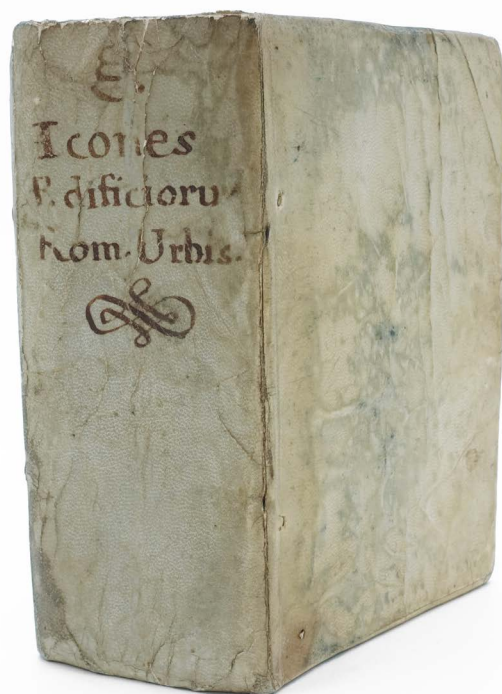 E.
Icones
Ædificioru
Rom. Urbis.